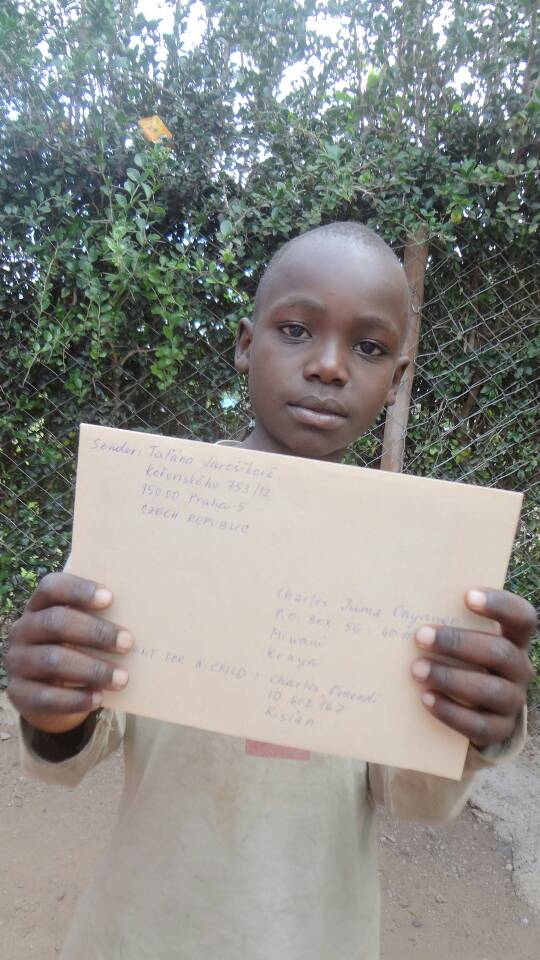 Sender: Taťána Jarošíková
Kořenského 753/12
150 00 Praha 5
CZECH REPUBLIC
Charles Juma Onyango
P.O. BOX 56-
Miwani
Kenya
ENT FOR A CHILD: Charles
ID
Kisian